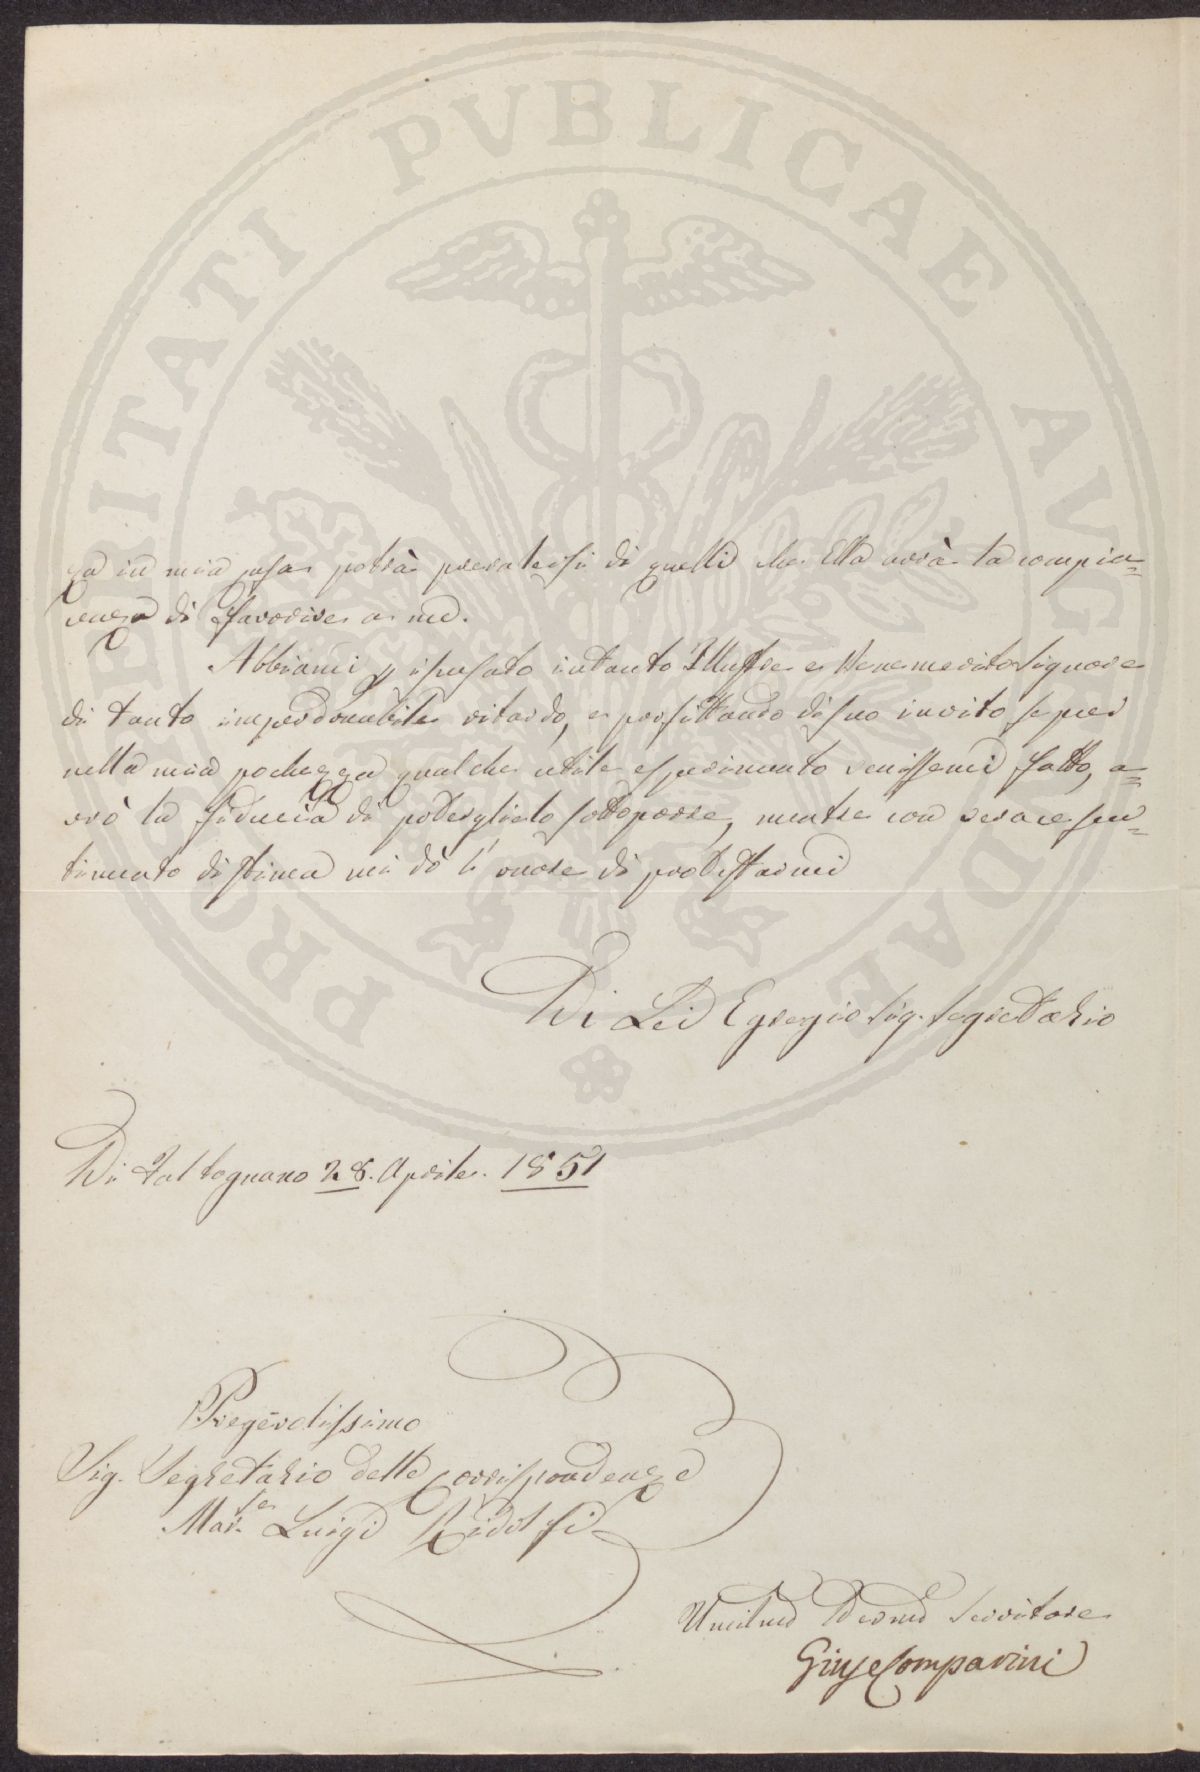 PROSPERITATI PVBLICAE AVGENDAE
za in mia casa potrà prevalersi di quelli che Ella avrà la compia=
cenza di favorire a me.
Abbiami scusato intanto Illustre e Benemerito Signore
di tanto imperdonabile ritardo, e profittando di suo invito se per
nella mia pochezza qualche utile esperimento venissemi fatto, a=
vrò la fiducia di poterglielo sottoporre, mentre con verace sen=
timento di stima mi dò l'onore di protestarmi
Di Lei Egregio Sig. Segretario
Di 28. Aprile. 1851
Pregevolissimo
Sig. Segretario delle Corrispondenze
Mar.se Luigi Ridolfi
Umilmo Devmo Servitore
Giuse Comparini